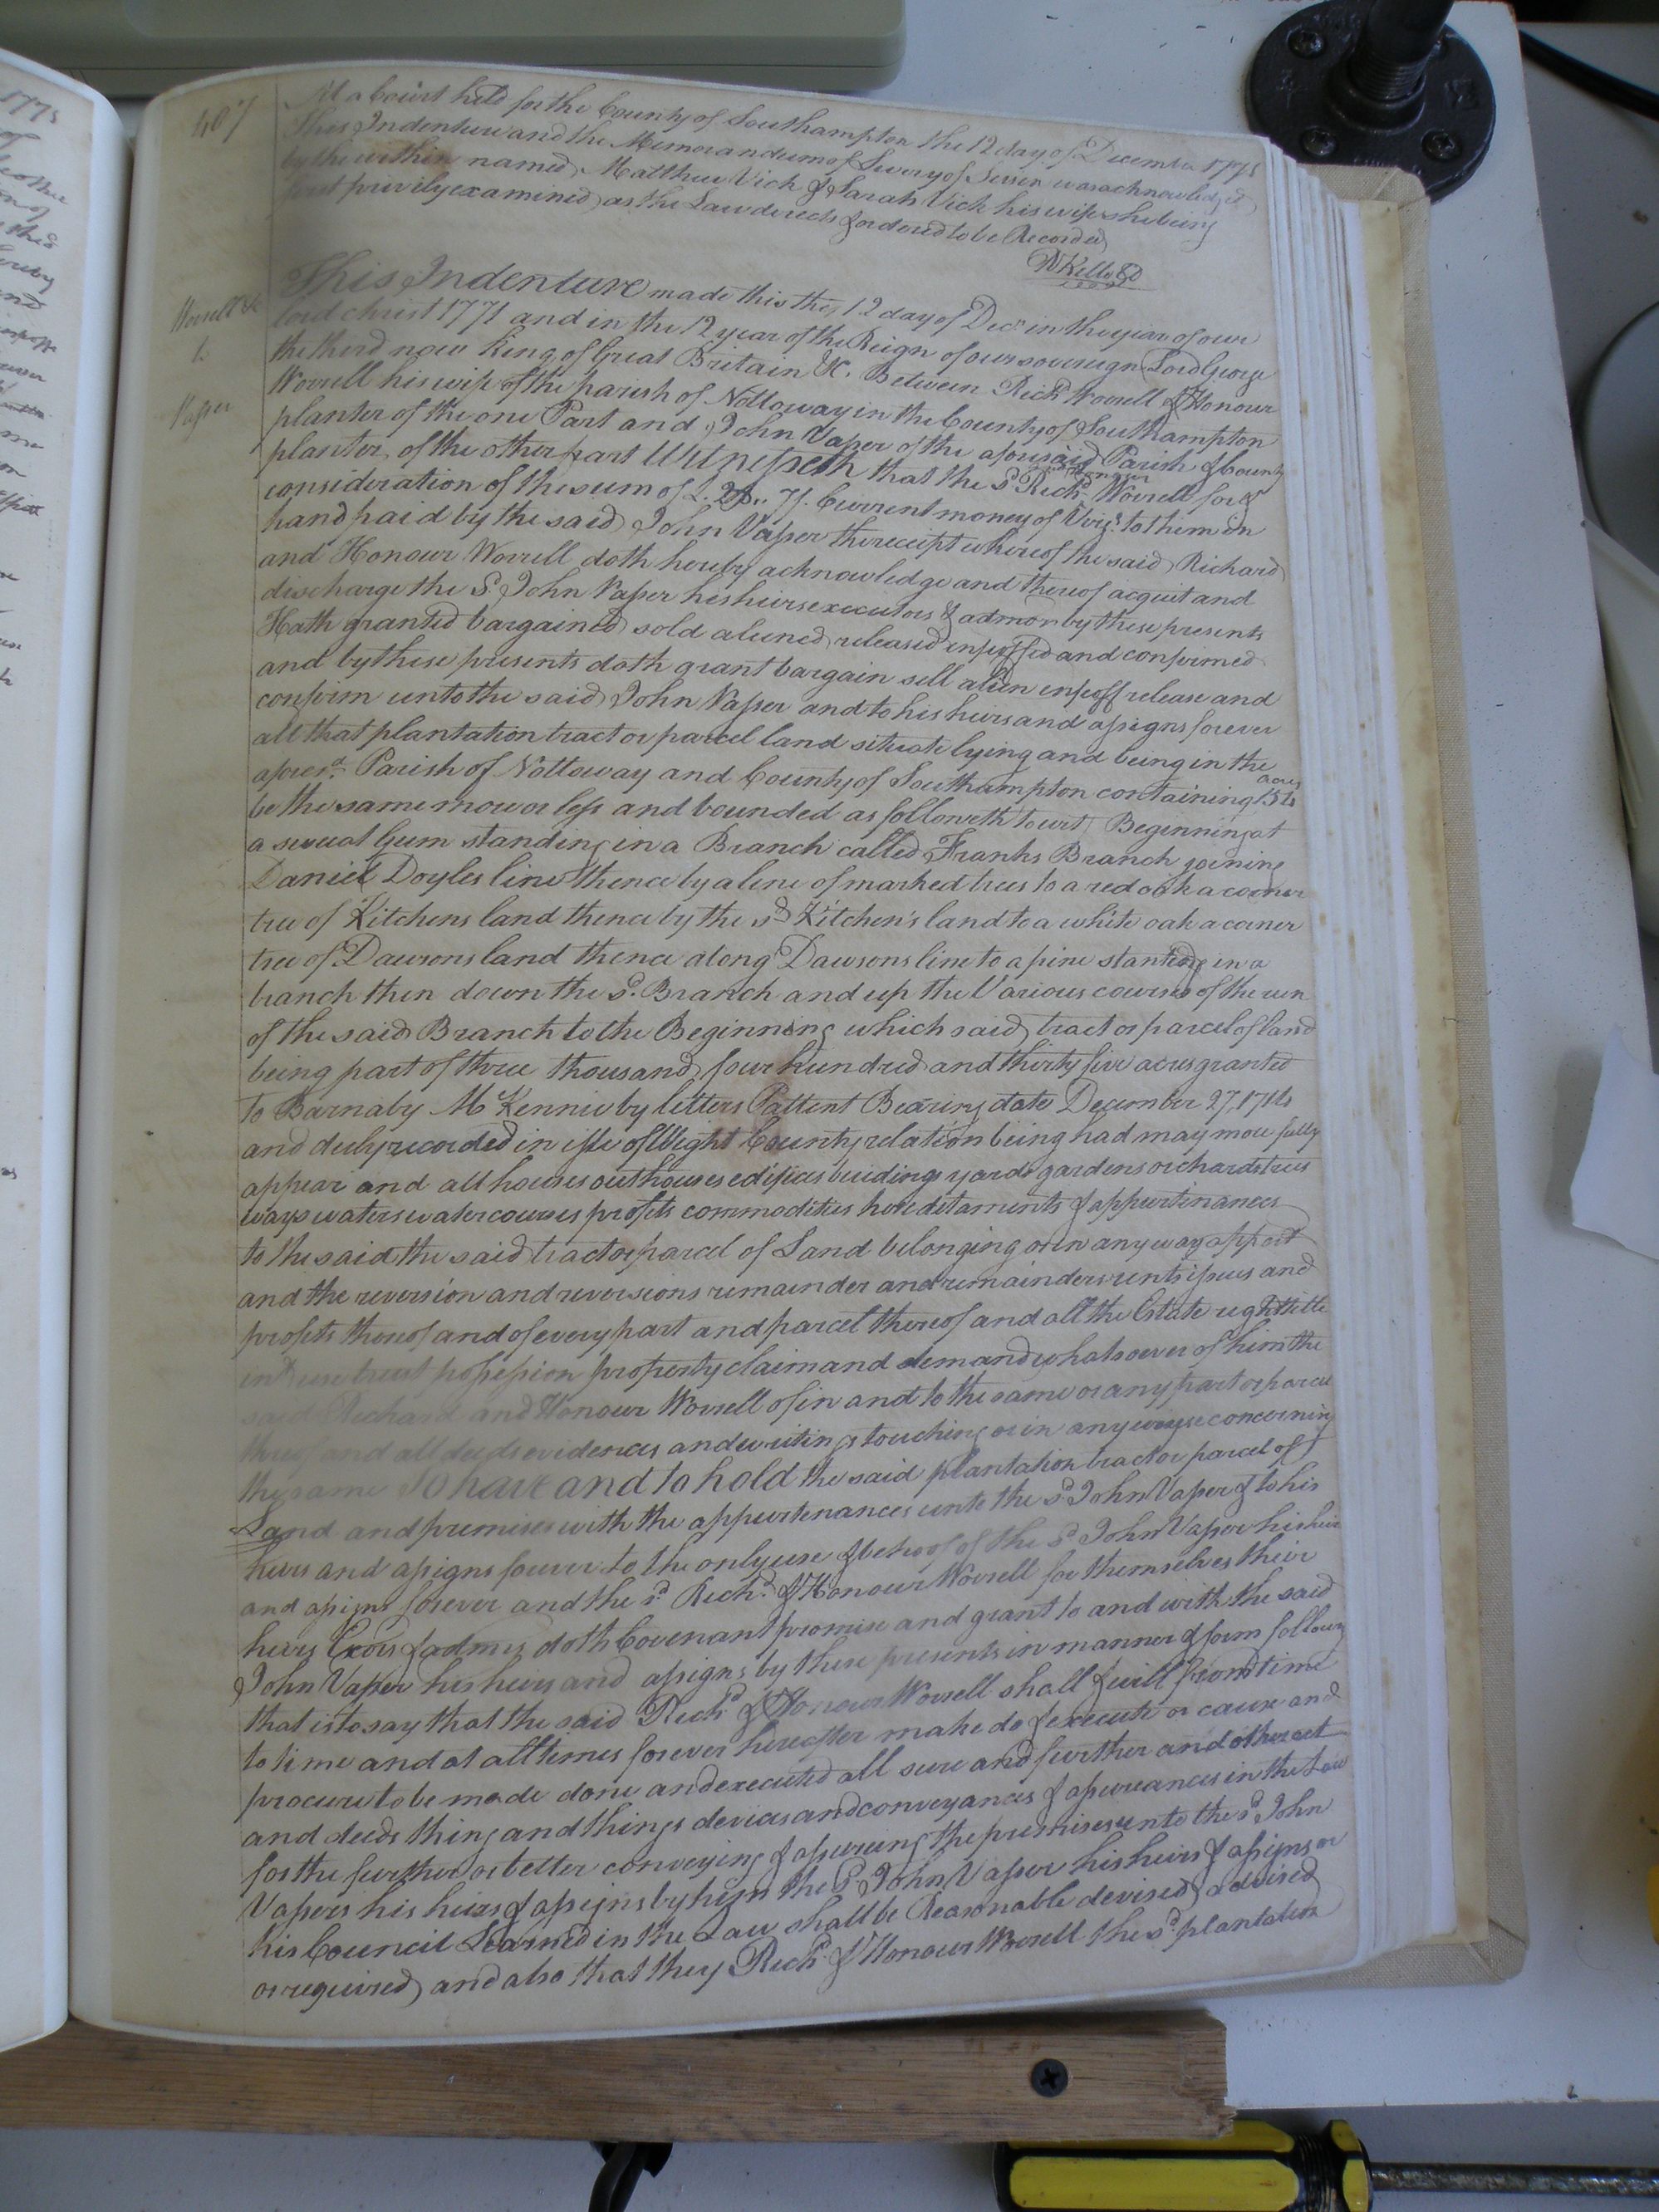 407
At a Court held for the County of Southampton the 12 day of December 1771
This Indenture and the Memorandum of Livery of Seisin was acknowledged
by the within named Matthew Vick & Sarah Vick his wife she being
first privily examined as the Law directs & ordered to be Recorded
Worrell &c
to
Vaser
This Indenture made this the 12 day of Decr in the year of our
lord christ 1771 and in the 12 year of the Reign of our sovereign Lord George
the third now King of Great Britain &c. Between Richd Worrell & Honour
Worrell his wife of the parish of Nottoway in the County of Southampton
planter of the one Part and John Vaser of the aforesaid Parish & County
planter of the other part Witnesseth that the sd. Richd. Worrell for &
consideration of the sum of £. Current money of Virga. to them in
hand paid by the said John Vaser the receipt whereof the said Richard
and Honour Worrell doth hereby acknowledge and thereof acquit and
discharge the Sd. John Vaser his heirs executors & admor by these presents
Hath granted bargained sold aliened released enfeoffed and confirmed
and by these presents doth grant bargain sell alien enfeoff release and
confirm unto the said John Vaser and to his heirs and assigns forever
all that plantation tract or parcel land situate lying and being in the
aforesd. Parish of Nottoway and County of Southampton containing acres
be the same more or less and bounded as followeth towit, Beginning at
a sweat Gum standing in a Branch called Franks Branch joening
Daniel Doyles line thence by a line of marked trees to a red oak a corner
tree of Kitchens land thence by the sd Kitchen's land to a white oak a corner
tree of Dawsons land thence along Dawsons line to a pine standing in a
branch then down the sd. Branch and up the Various courses of the run
of the said Branch to the Beginning which said tract or parcel of land
being part of three thousand four hundred and thirty five acres granted
to Barnaby Mc Kennie by letters Pattent Bearing date December 27, 1714
and duly recorded in isle of Wight County relation being had may more fully
appear and all houses outhouses edifices buidings yards gardens orchards trees
ways waters watercourses profits commodities hereditaments & appurtinances
to the said the said tract or parcel of Land belonging or in any way appert
and the reversion and reversions remainder and remainders rents issues and
profits thereof and of every part and parcel thereof and all the Estate right title
intt use trust possession property claim and demand whatsoever of him the
said Richard and Honour Worrell of in and to the same or any part or parcel
thereof and all deeds evidences and writings touching or in any wayse concerning
the same To have and to hold the said plantation tract or parcel of
Land and premises with the appurtenances unto the sd John Vaser & to his
heirs and assigns forever to the only use & behoof of the sd John Vaser his heirs
and assigns forever and the sd. Richd. & Honour Worrell for themselves their
heirs Exors & admrs doth Covenant promise and grant to and with the said
John Vaser his heirs and assigns by these presents in manner & form following
that is to say that the said Richd. & Honour Worrell shall & will from time
to time and at all times forever hereafter make do & execute or cause and
procure to be made done and executed all sure and further and other act
and deeds thing and things devices and conveyances & assurances in the Law
for the further or better conveying & assureing the premises unto the sd. John
Vasers his heirs & assigns by him the Sd. John Vasser his heirs & assigns or
his Council Learned in the Law shall be Reasonable devised advised
or required, and also that they Richd. & Honour Worrell the sd. plantation